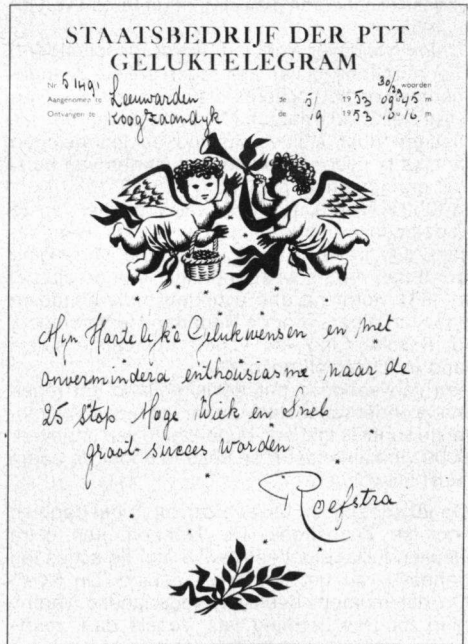 STAATSBEDRIJF DER PTT
GELUKTELEGRAM
30/29 woorden
Nr. 51491
Aangenomen te Leeuwarden de 5/ 1953 09u45 m
Ontvangen te Koogzaandyk de 19 1953 10u16 m
Myn Hartelijke Gelukwensen en met
onverminderd enthousiasme naar de
25 Stop Moge Wiek en Snel
groot succes worden
Roefstra